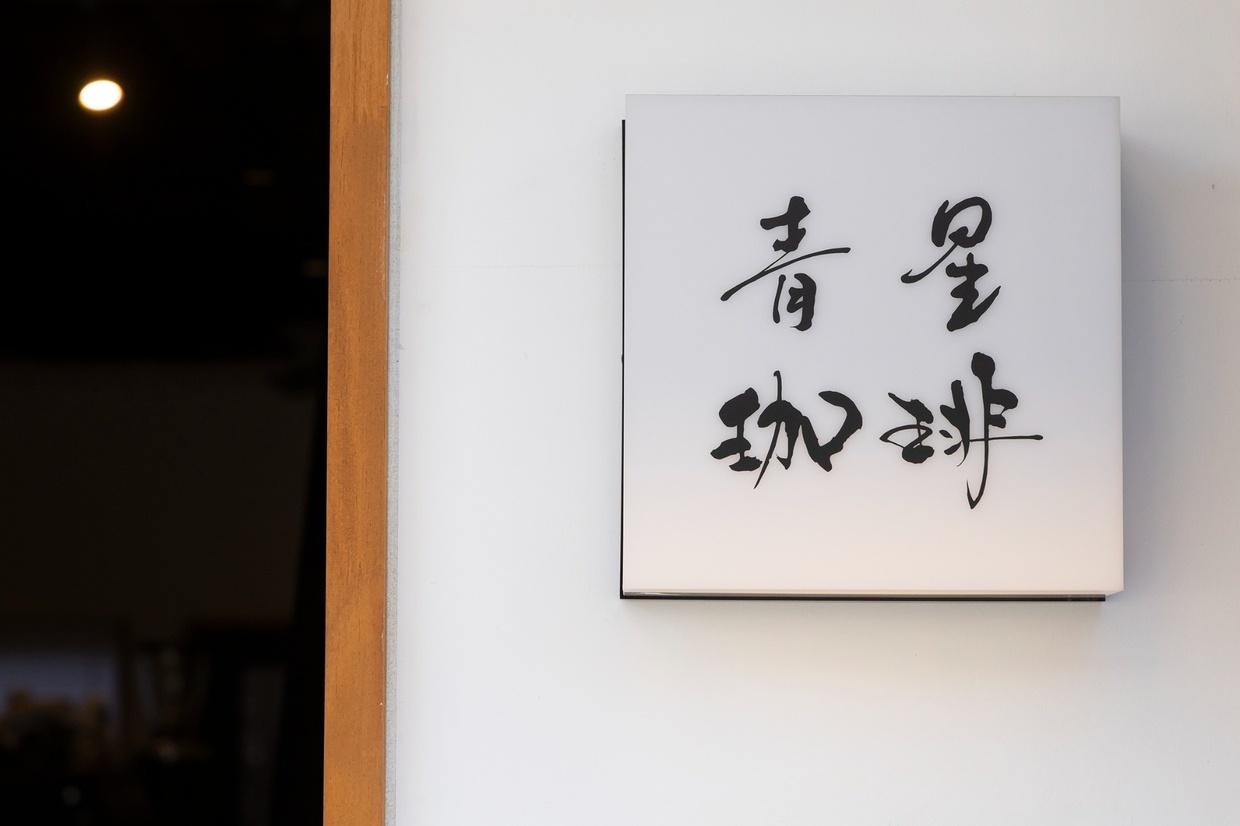 青星
珈琲